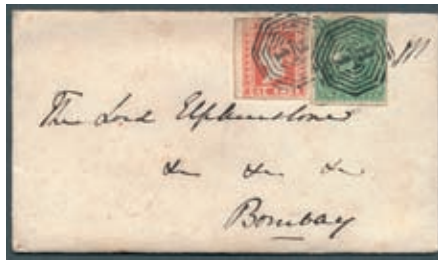 The Lord Elphinstone
&c &c &c
Bombay